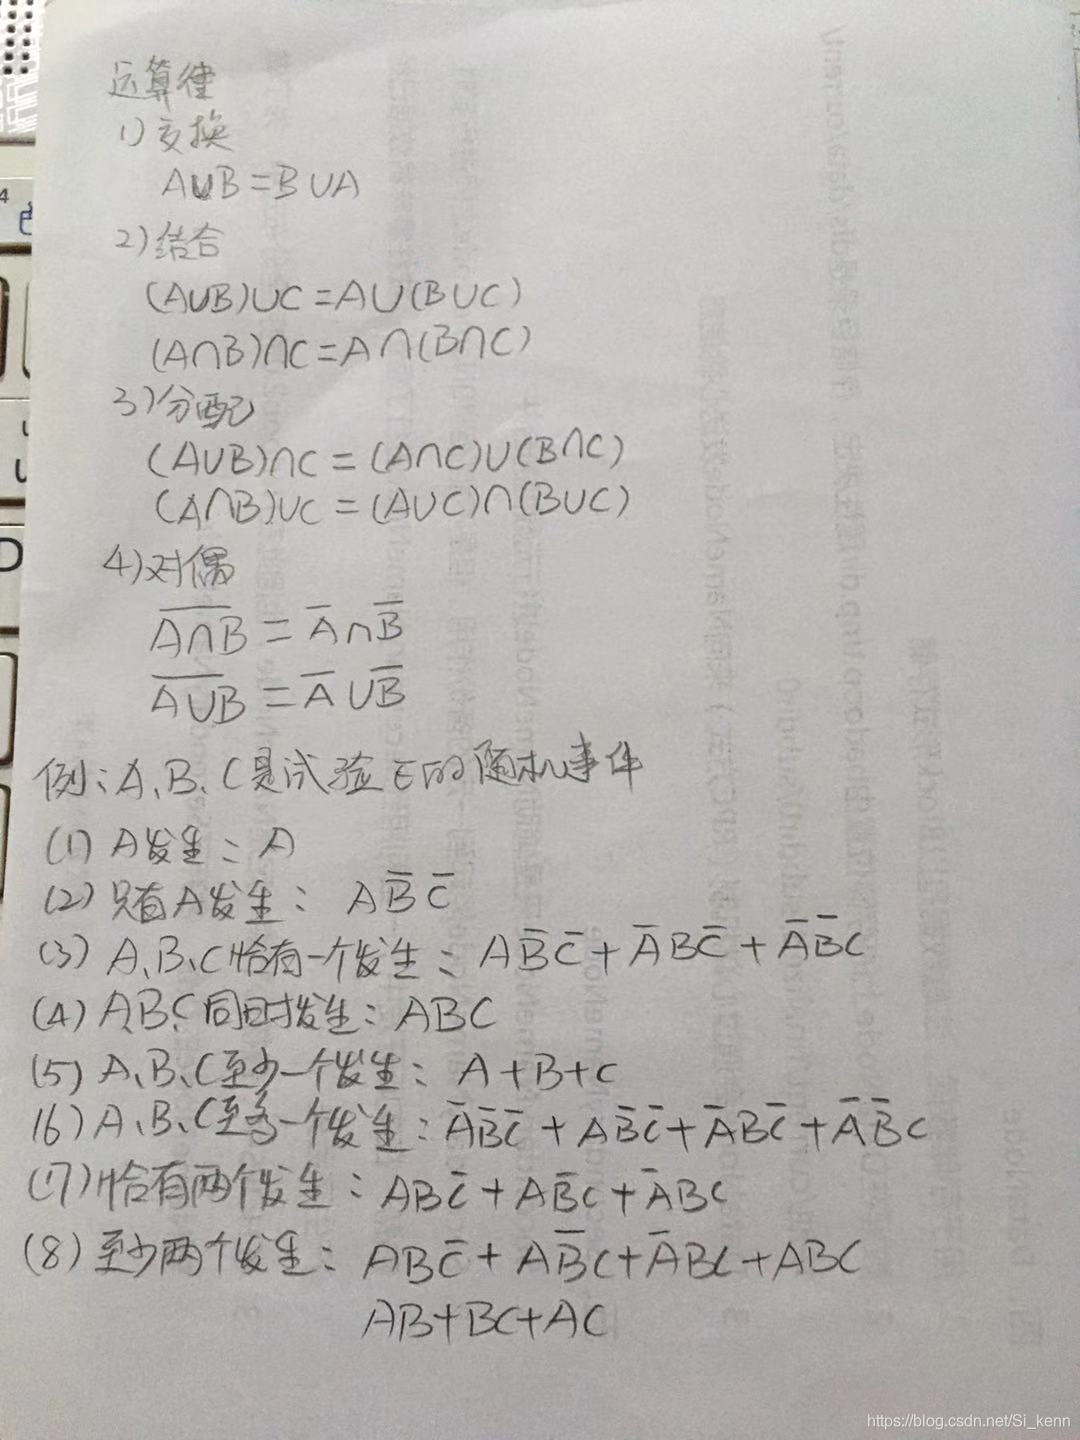 运算律
1) 交换
A∪B=B∪A
2) 结合
(A∪B)∪C=A∪(B∪C)
(A∩B)∩C=A∩(B∩C)
3) 分配
(A∪B)∩C=(A∩C)∪(B∩C)
(A∩B)∪C=(A∪C)∩(B∪C)
4) 对偶
A̅∩̅B̅ = A̅∩B̅
A̅∪̅B̅ = A̅∪B̅
例:A、B、C是试验E的随机事件
(1) A发生:A
(2) 只有A发生:AB̅C̅
(3) A、B、C恰有一个发生:AB̅C̅+A̅BC̅+A̅B̅C
(4) A、B、C同时发生:ABC
(5) A、B、C至少一个发生:A+B+C
(6) A、B、C至多一个发生:A̅B̅C̅+AB̅C̅+A̅BC̅+A̅B̅C
(7) 恰有两个发生:ABC̅+AB̅C+A̅BC
(8) 至少两个发生:ABC̅+AB̅C+A̅BC+ABC
AB+BC+AC
https://blog.csdn.net/Si_kenn